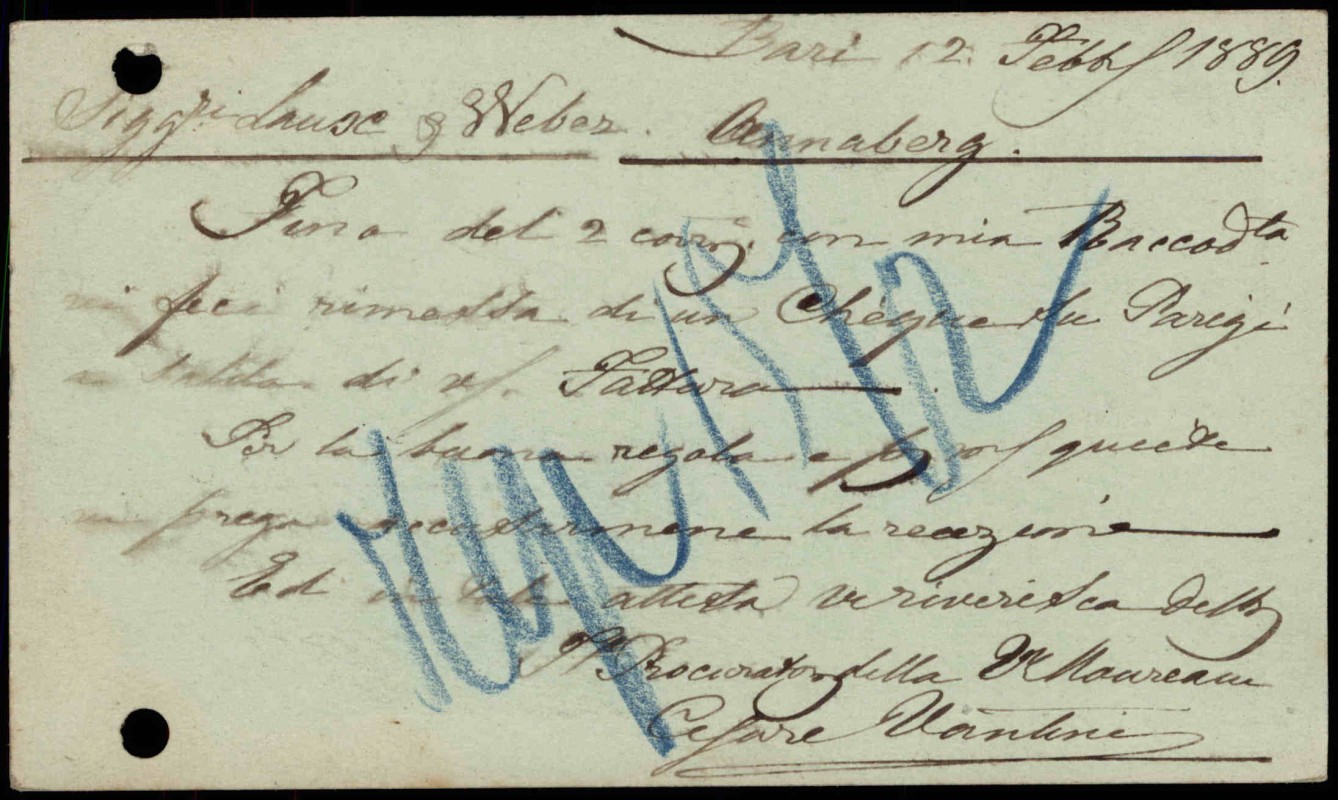 Bari 12 Febb 1889.
Sigg.ri Lause & Weber. Annaberg.
Fino del 2 corr. con mia Raccod.ta
vi feci rimessa di un Chéque su Parigi
a saldo di vs. Fattura
Per la buona regola e quiete
vi prego accusarmene la recezione
Ed in tale attesa vi riverisco
Il Procurator della Ve Moureau
Cesare Vantini